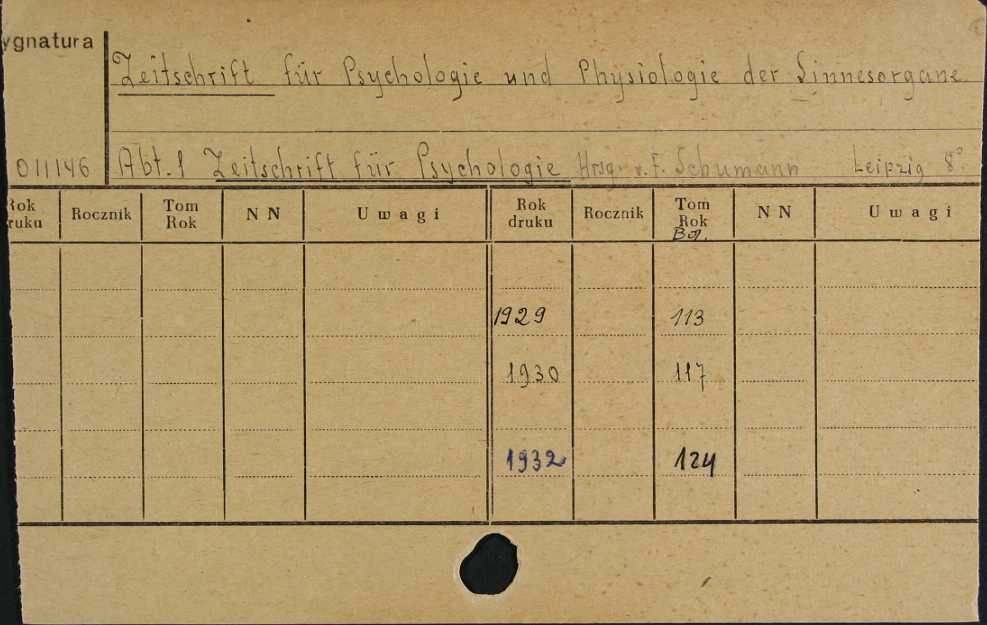 ygnatura
Zeitschrift für Psychologie und Physiologie der Sinnesorgane
011146 Abt. 1 Zeitschrift für Psychologie Hrsg. v. F. Schumann Leipzig 8°
Rok druku Rocznik Tom Rok NN Uwagi Rok druku Rocznik Tom Rok NN Uwagi
1929 113
1930 117
1932 124